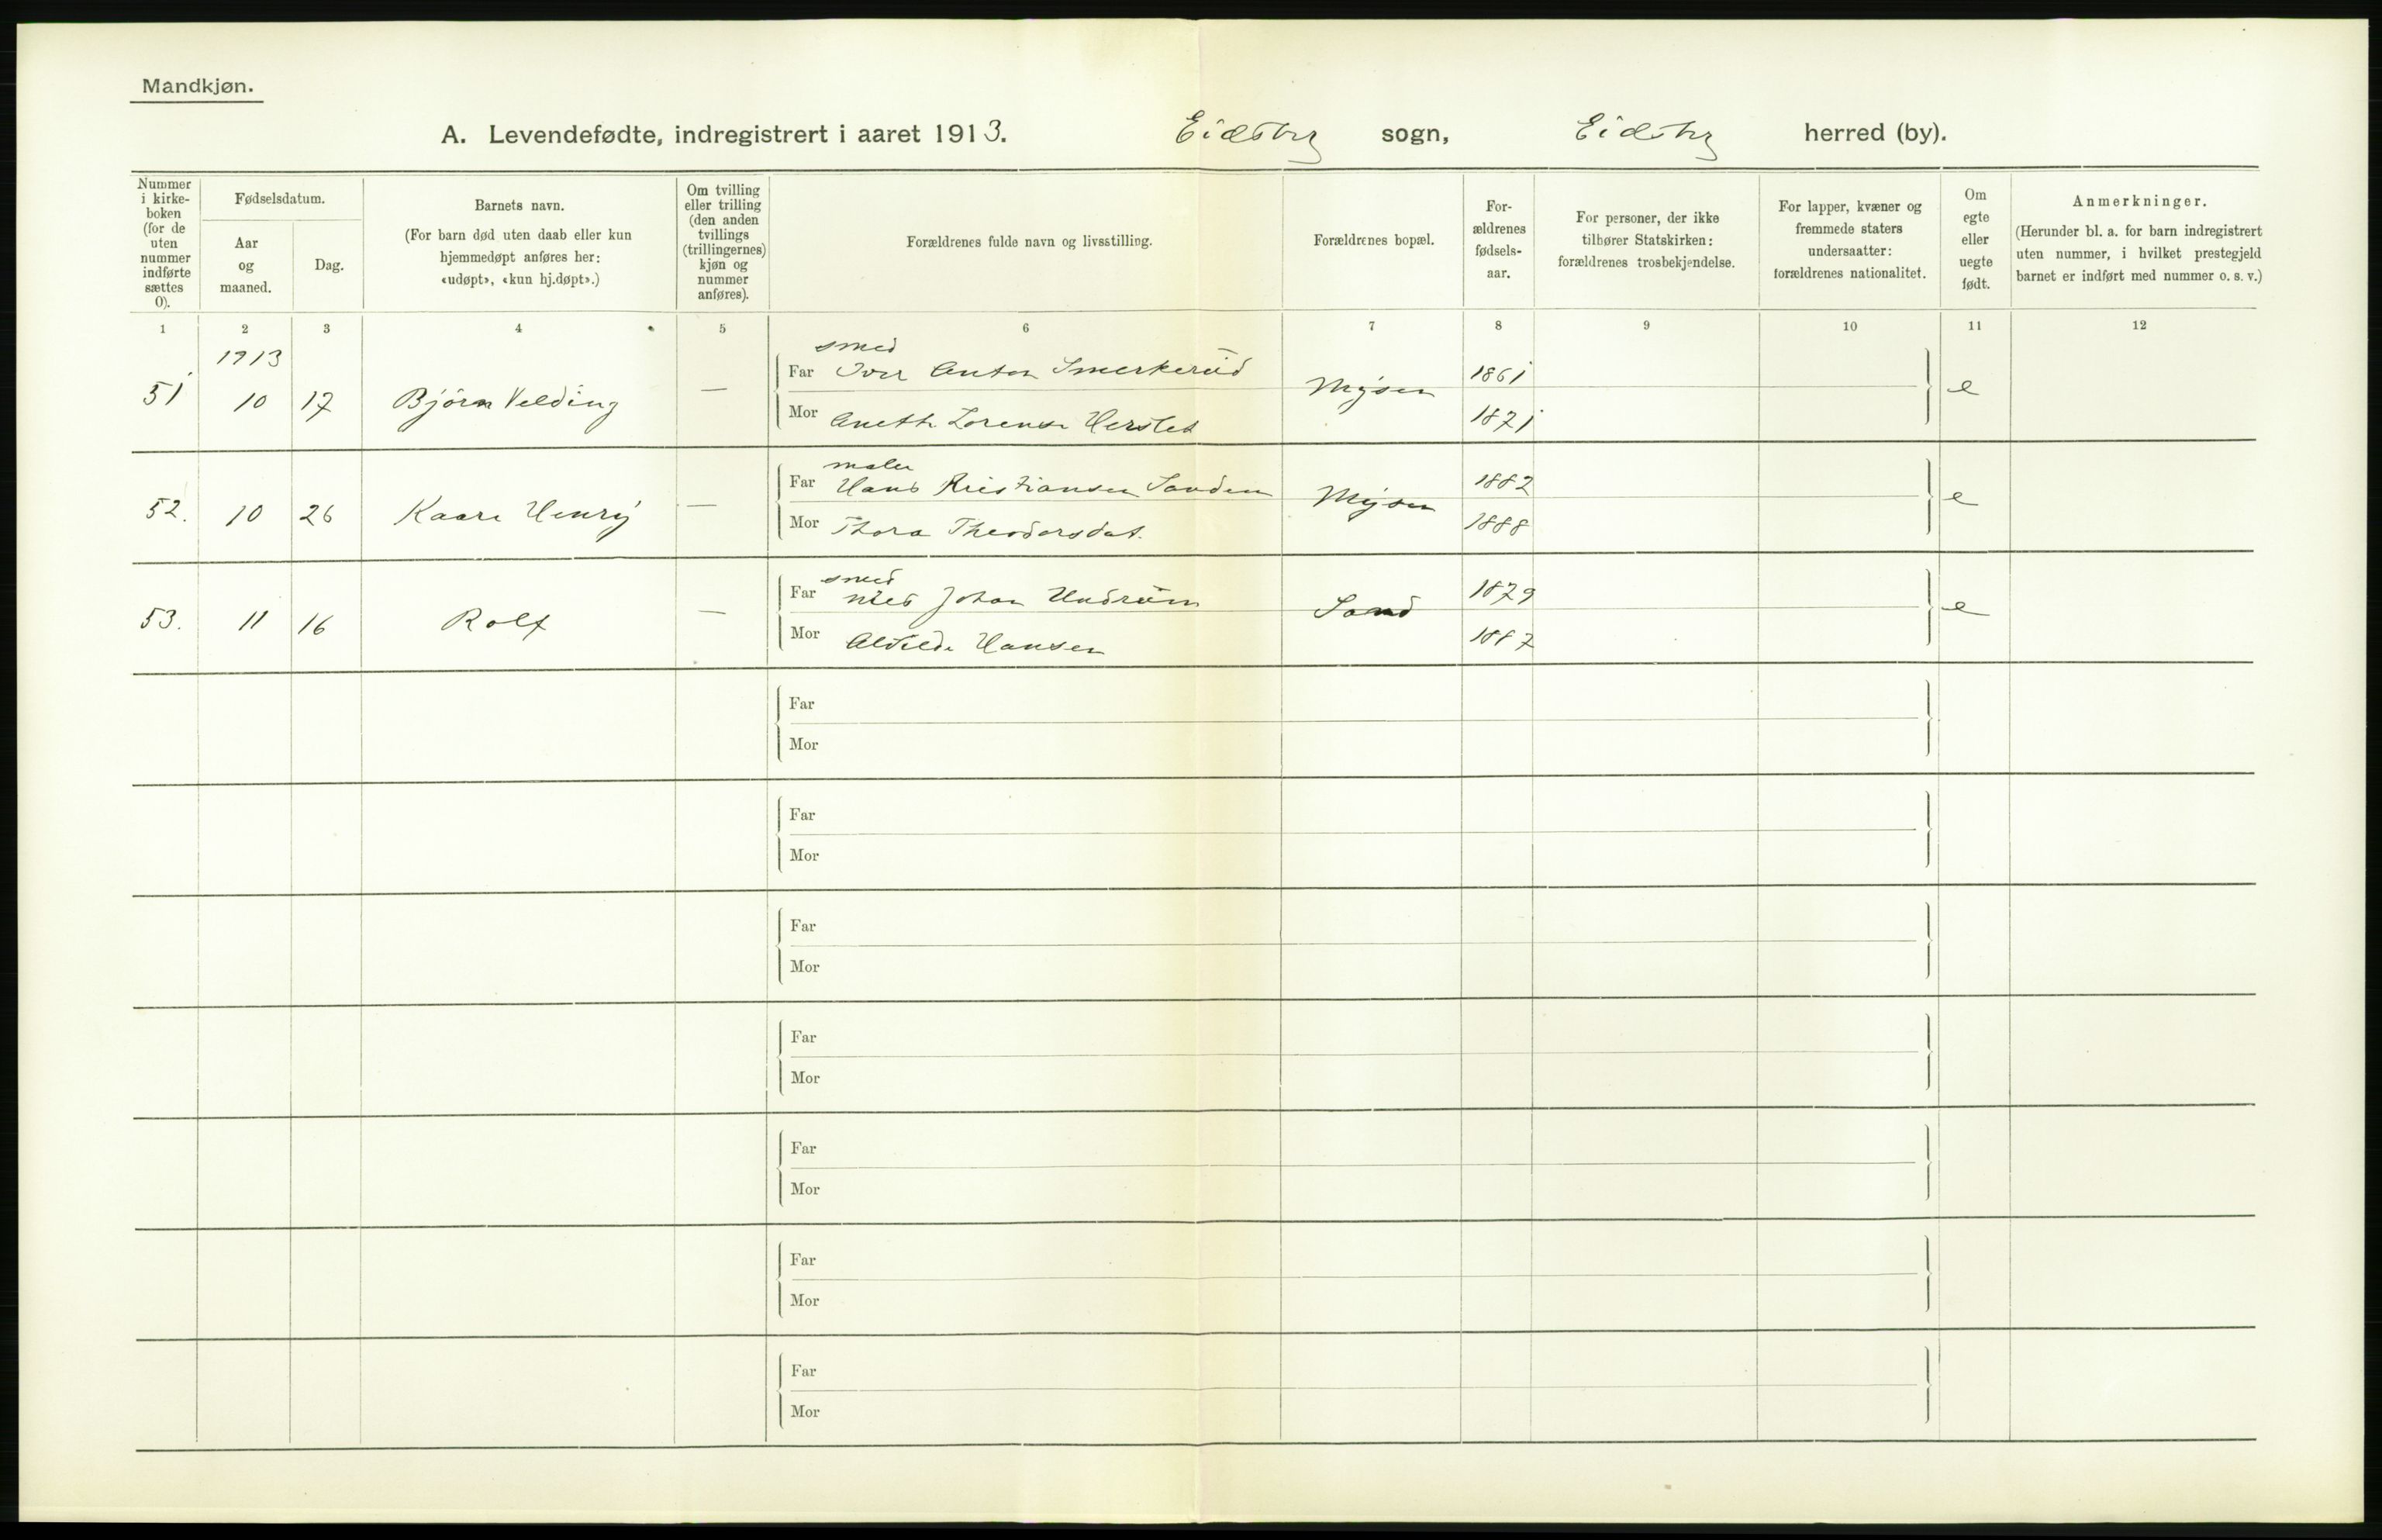 Mandkjøn.
A. Levendefødte, indregistrert i aaret 1913. Eidsbrg sogn, Eidsbrg herred (by).
Nummer i kirke-boken (for de uten nummer indførte sættes 0).
Fødselsdatum.
Aar og maaned.
Dag.
Barnets navn.
(For barn død uten daab eller kun hjemmedøpt anføres her: «udøpt», «kun hj.døpt».)
Om tvilling eller trilling (den anden tvillings (trillingernes) kjøn og nummer anføres).
Forældrenes fulde navn og livsstilling.
Forældrenes bopæl.
For-ældrenes fødsels-aar.
For personer, der ikke tilhører Statskirken: forældrenes trosbekjendelse.
For lapper, kvæner og fremmede staters undersaatter: forældrenes nationalitet.
Om egte eller uegte født.
Anmerkninger.
(Herunder bl. a. for barn indregistrert uten nummer, i hvilket prestegjeld barnet er indført med nummer o. s. v.)
1 2 3 4 5 6 7 8 9 10 11 12
1913
smed
51 10 17 Bjørn Velding — Far Iver Anton Smerkerud Mysen 1861 e
Mor Aneth Lorense Hersled 1871
maler
52. 10 26 Kaare Henry — Far Hans Kristiansen Sanden Mysen 1882 e
Mor Thora Theodorsdat. 1888
smed
53. 11 16 Rolf — Far Nils Johan Undrum Sand 1879 e
Mor Alvilde Hansen 1887
Far
Mor
Far
Mor
Far
Mor
Far
Mor
Far
Mor
Far
Mor
Far
Mor